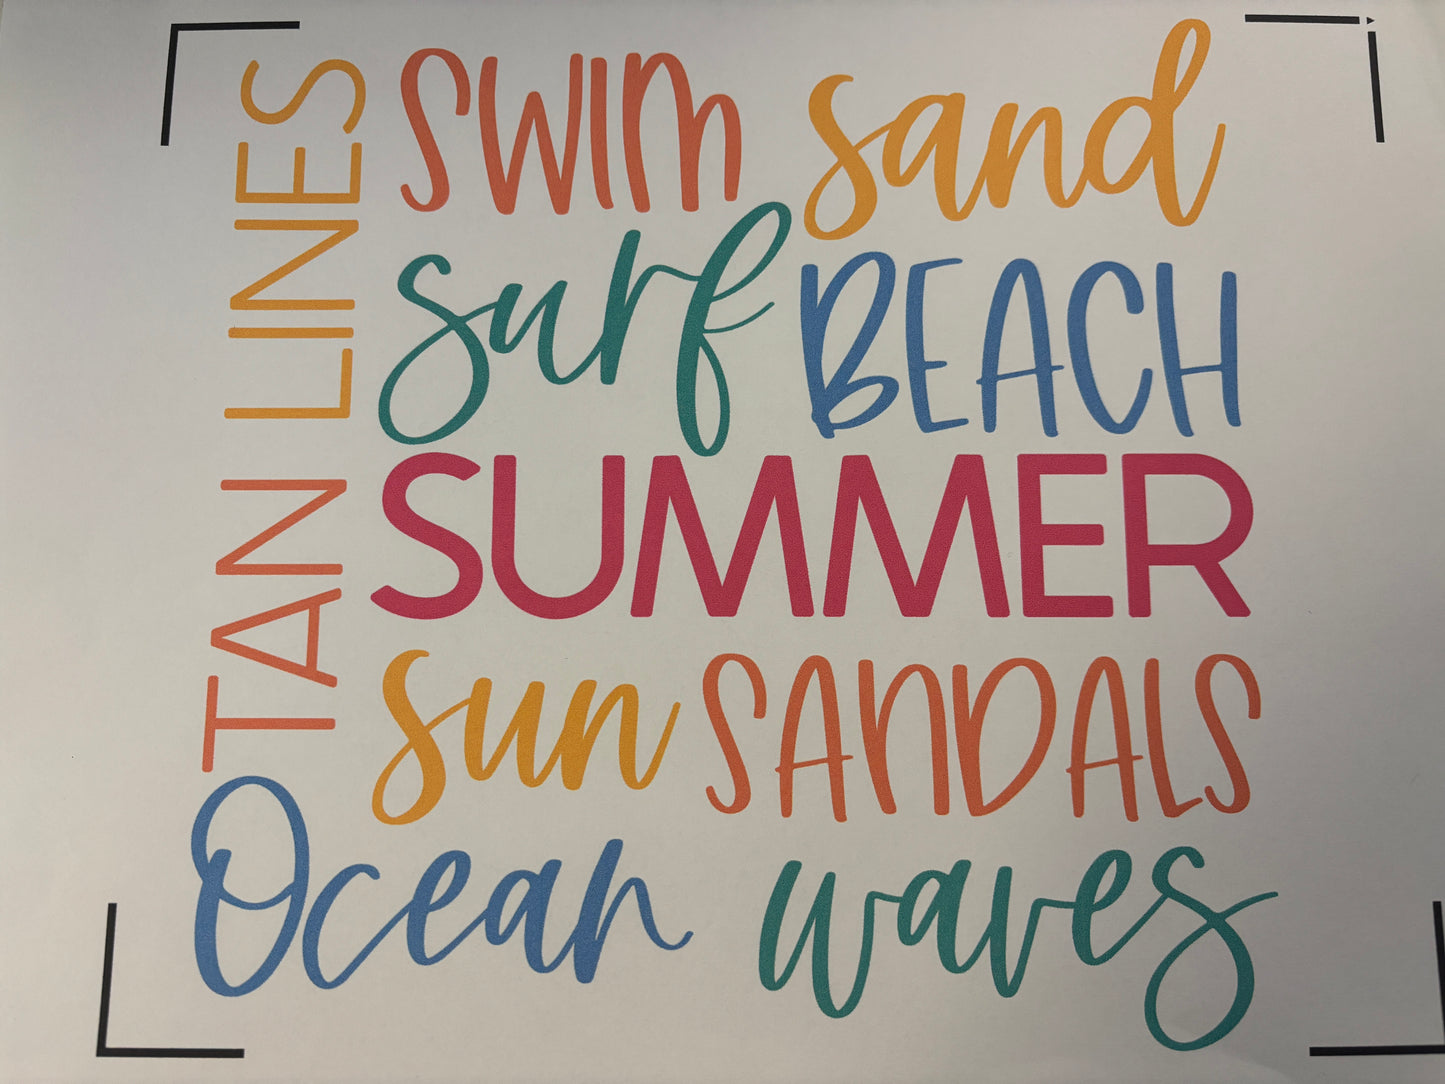 TAN LINES
SWIM sand
surf BEACH
SUMMER
sun SANDALS
Ocean waves